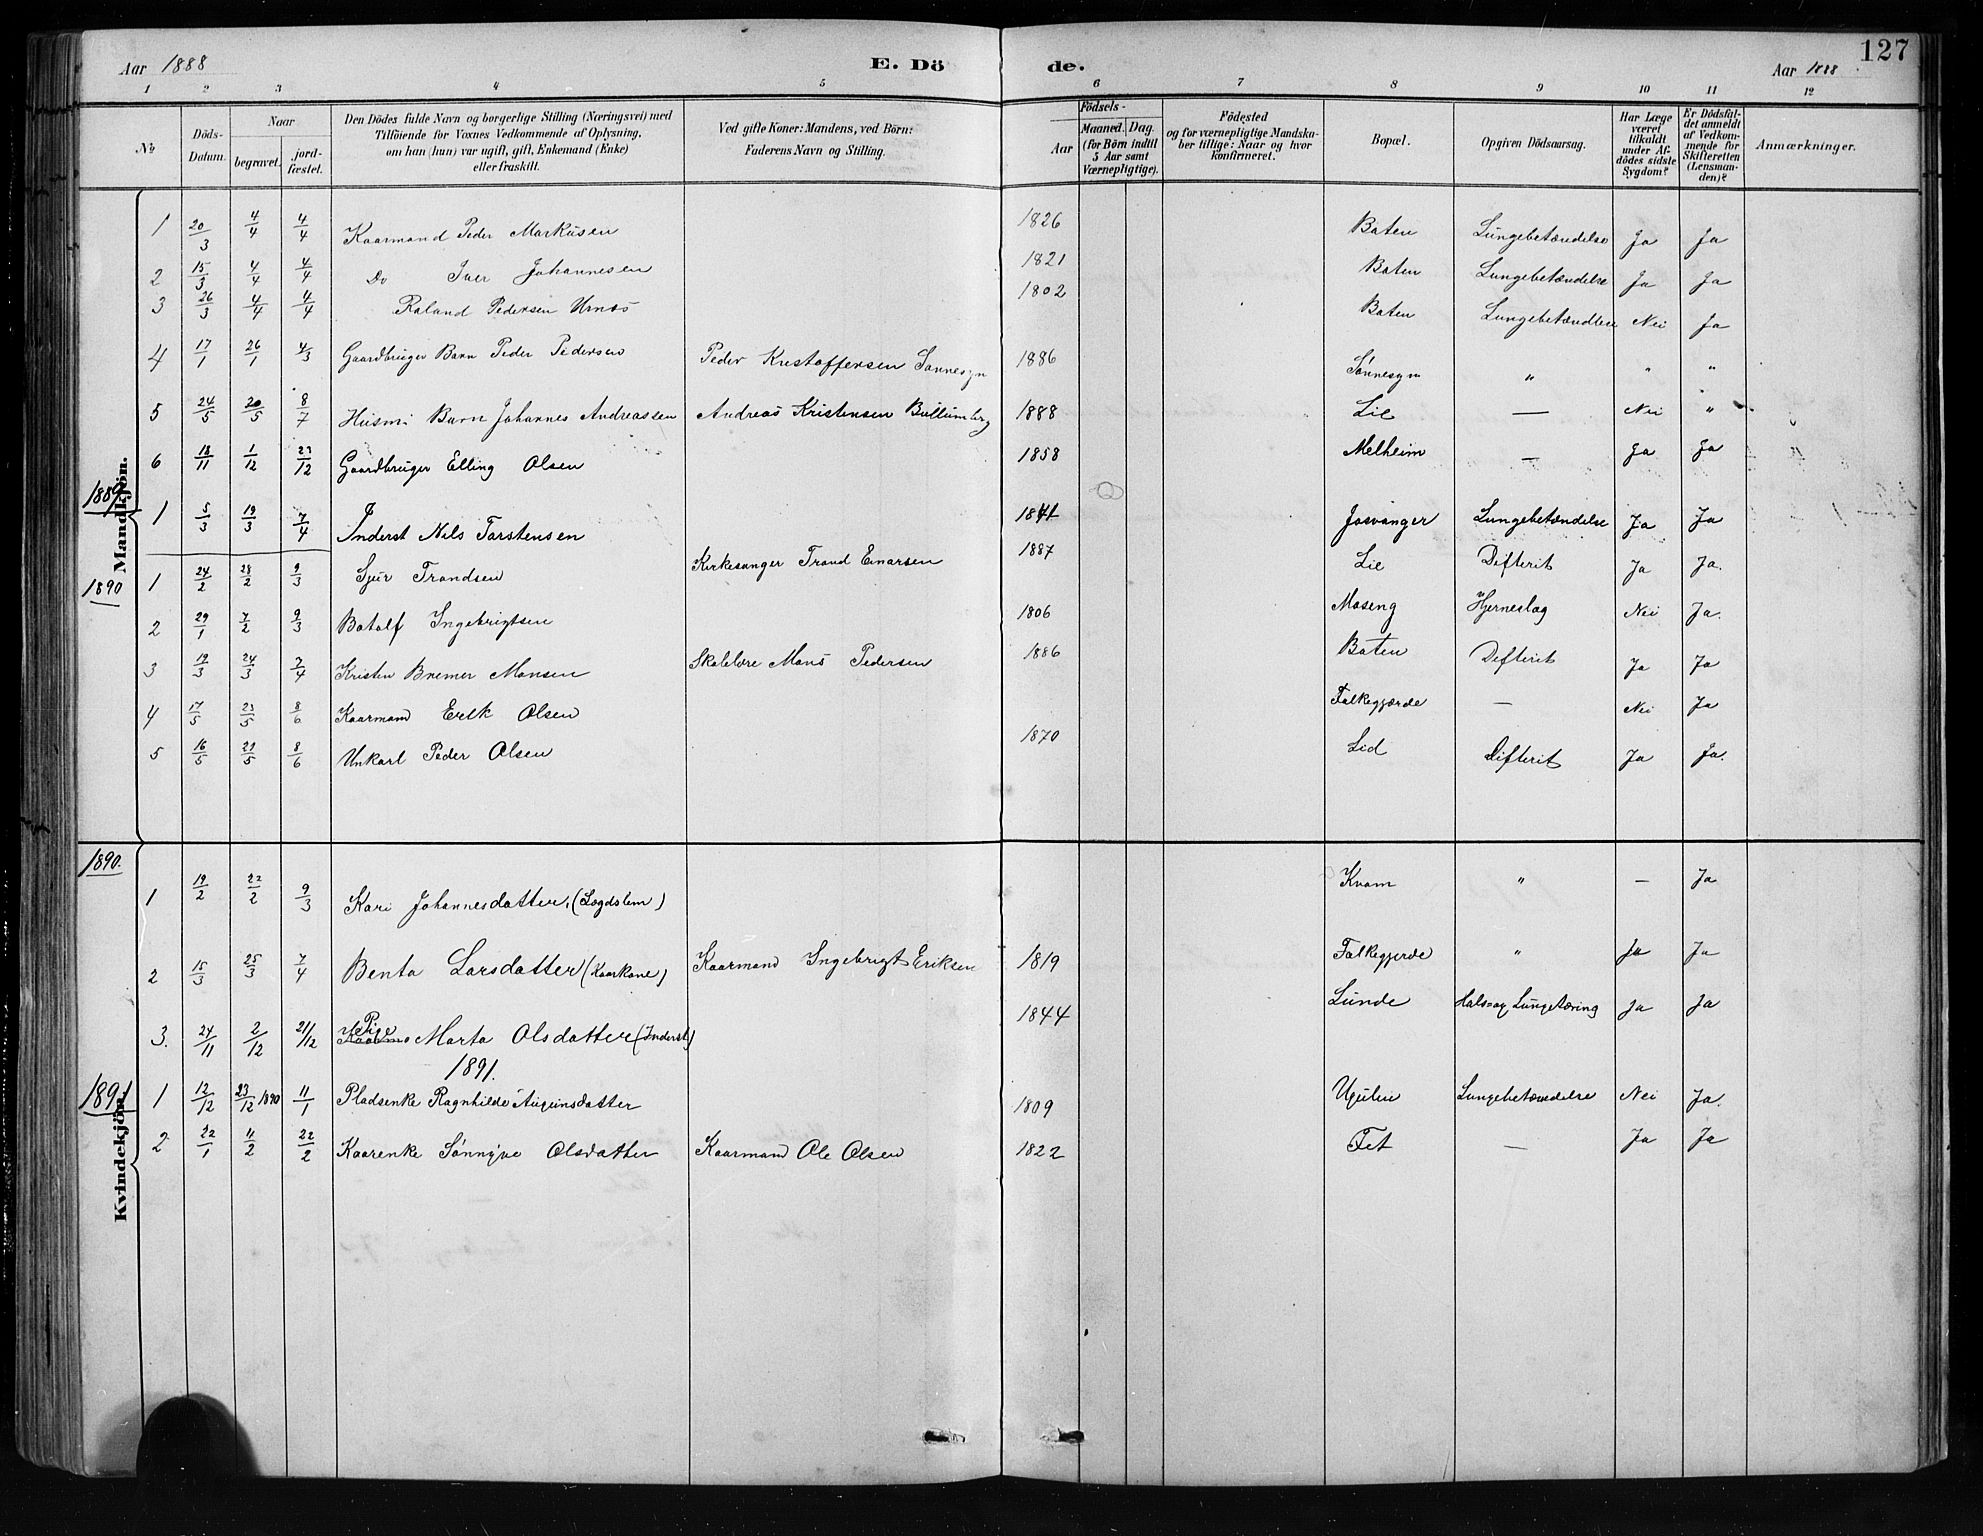 127
Aar 1888 E. Dö de. Aar 1888
1 2 3 4 5 6 7 8 9 10 11 12
No
Döds-Datum.
Naar
begravet. jord-fæstet.
Den Dödes fulde Navn og borgerlige Stilling (Næringsvei) med
Tilföiende for Voxnes Vedkommende af Oplysning,
om han (hun) var ugift, gift, Enkemand (Enke)
eller fraskilt.
Ved gifte Koner: Mandens, ved Börn:
Faderens Navn og Stilling.
Födsels-
Aar Maaned. Dag.
(for Börn indtil
5 Aar samt
Værnepligtige).
Födested
og for værnepligtige Mandska-
ber tillige: Naar og hvor
konfirmeret.
Bopæl.
Opgiven Dödsaarsag.
Har Læge
været
tilkaldt
under Af-
dödes sidste
Sygdom?
Er Dödsfal-
det anmeldt
af Vedkom-
mende for
Skifteretten
(Lensman-
den)?
Anmærkninger.
Mandkjön.
1 20/3 4/4 4/4 Kaarmand Peder Markusen 1826 Baten Lungebetændelse Ja Ja
2 15/3 4/4 4/4 Do Iver Johannesen 1821 Baten Lungebetændelse Ja Ja
3 26/3 4/4 4/4 Roland Pedersen Urnæs 1802 Baten Lungebetændlese Nei Ja
4 17/1 26/1 4/3 Gaardbruger Barn Peder Pedersen Peder Kristoffersen Sønnesyn 1886 Sønnesyn " " "
5 24/5 20/5 8/7 Husm: Barn Johannes Andreassen Andreas Kristensen 1888 Lie — Nei "
6 18/11 1/12 23/12 Gaardbruger Elling Olsen 1858 Melheim — Ja Ja
1889
1 5/3 19/3 7/4 Inderst Nils Torstensen 1841 Josvanger Lungebetændelse Ja Ja
1890
1 24/2 28/2 9/3 Sjur Trondsen Kirkesanger Trond Einarsen 1887 Lie Difterit Ja Ja.
2 29/1 7/2 9/3 Botolf Ingebrigtsen 1806 Moseng Hjerneslag Nei Ja.
3 19/3 24/3 7/4 Kristen Bremer Monsen Skolelære Mons Pedersen 1886 Baten Difterit Ja Ja
4 17/5 23/5 8/6 Kaarmand Erik Olsen Falkegjærde — Nei Ja
5 16/5 21/5 8/6 Unkarl Peder Olsen 1870 Lid Difterit Ja Ja.
Kvindekjön.
1890.
1 19/2 22/2 9/3 Kari Johannesdatter, (Lægdslem) Kvam " — Ja
2 15/3 25/3 7/4 Benta Larsdatter (Kaarkone) Kaarmand Ingebrigt Eriksen 1819 Falkegjerde " Ja Ja
3. 24/11 2/12 21/12 Pige Marta Olsdatter (Inderst) 1844 Lunde Hals- og Lungetæring Ja Ja
1891.
1891
1 12/12 23/12 1890 11/1 Pladsenke Ragnhilde Augunsdatter 1809 Ugulen Lungebetændelse Nei Ja.
2 22/1 11/2 22/2 Kaarenke Sønnijve Olsdatter Kaarmand Ole Olsen 1822 Fet — Ja Ja